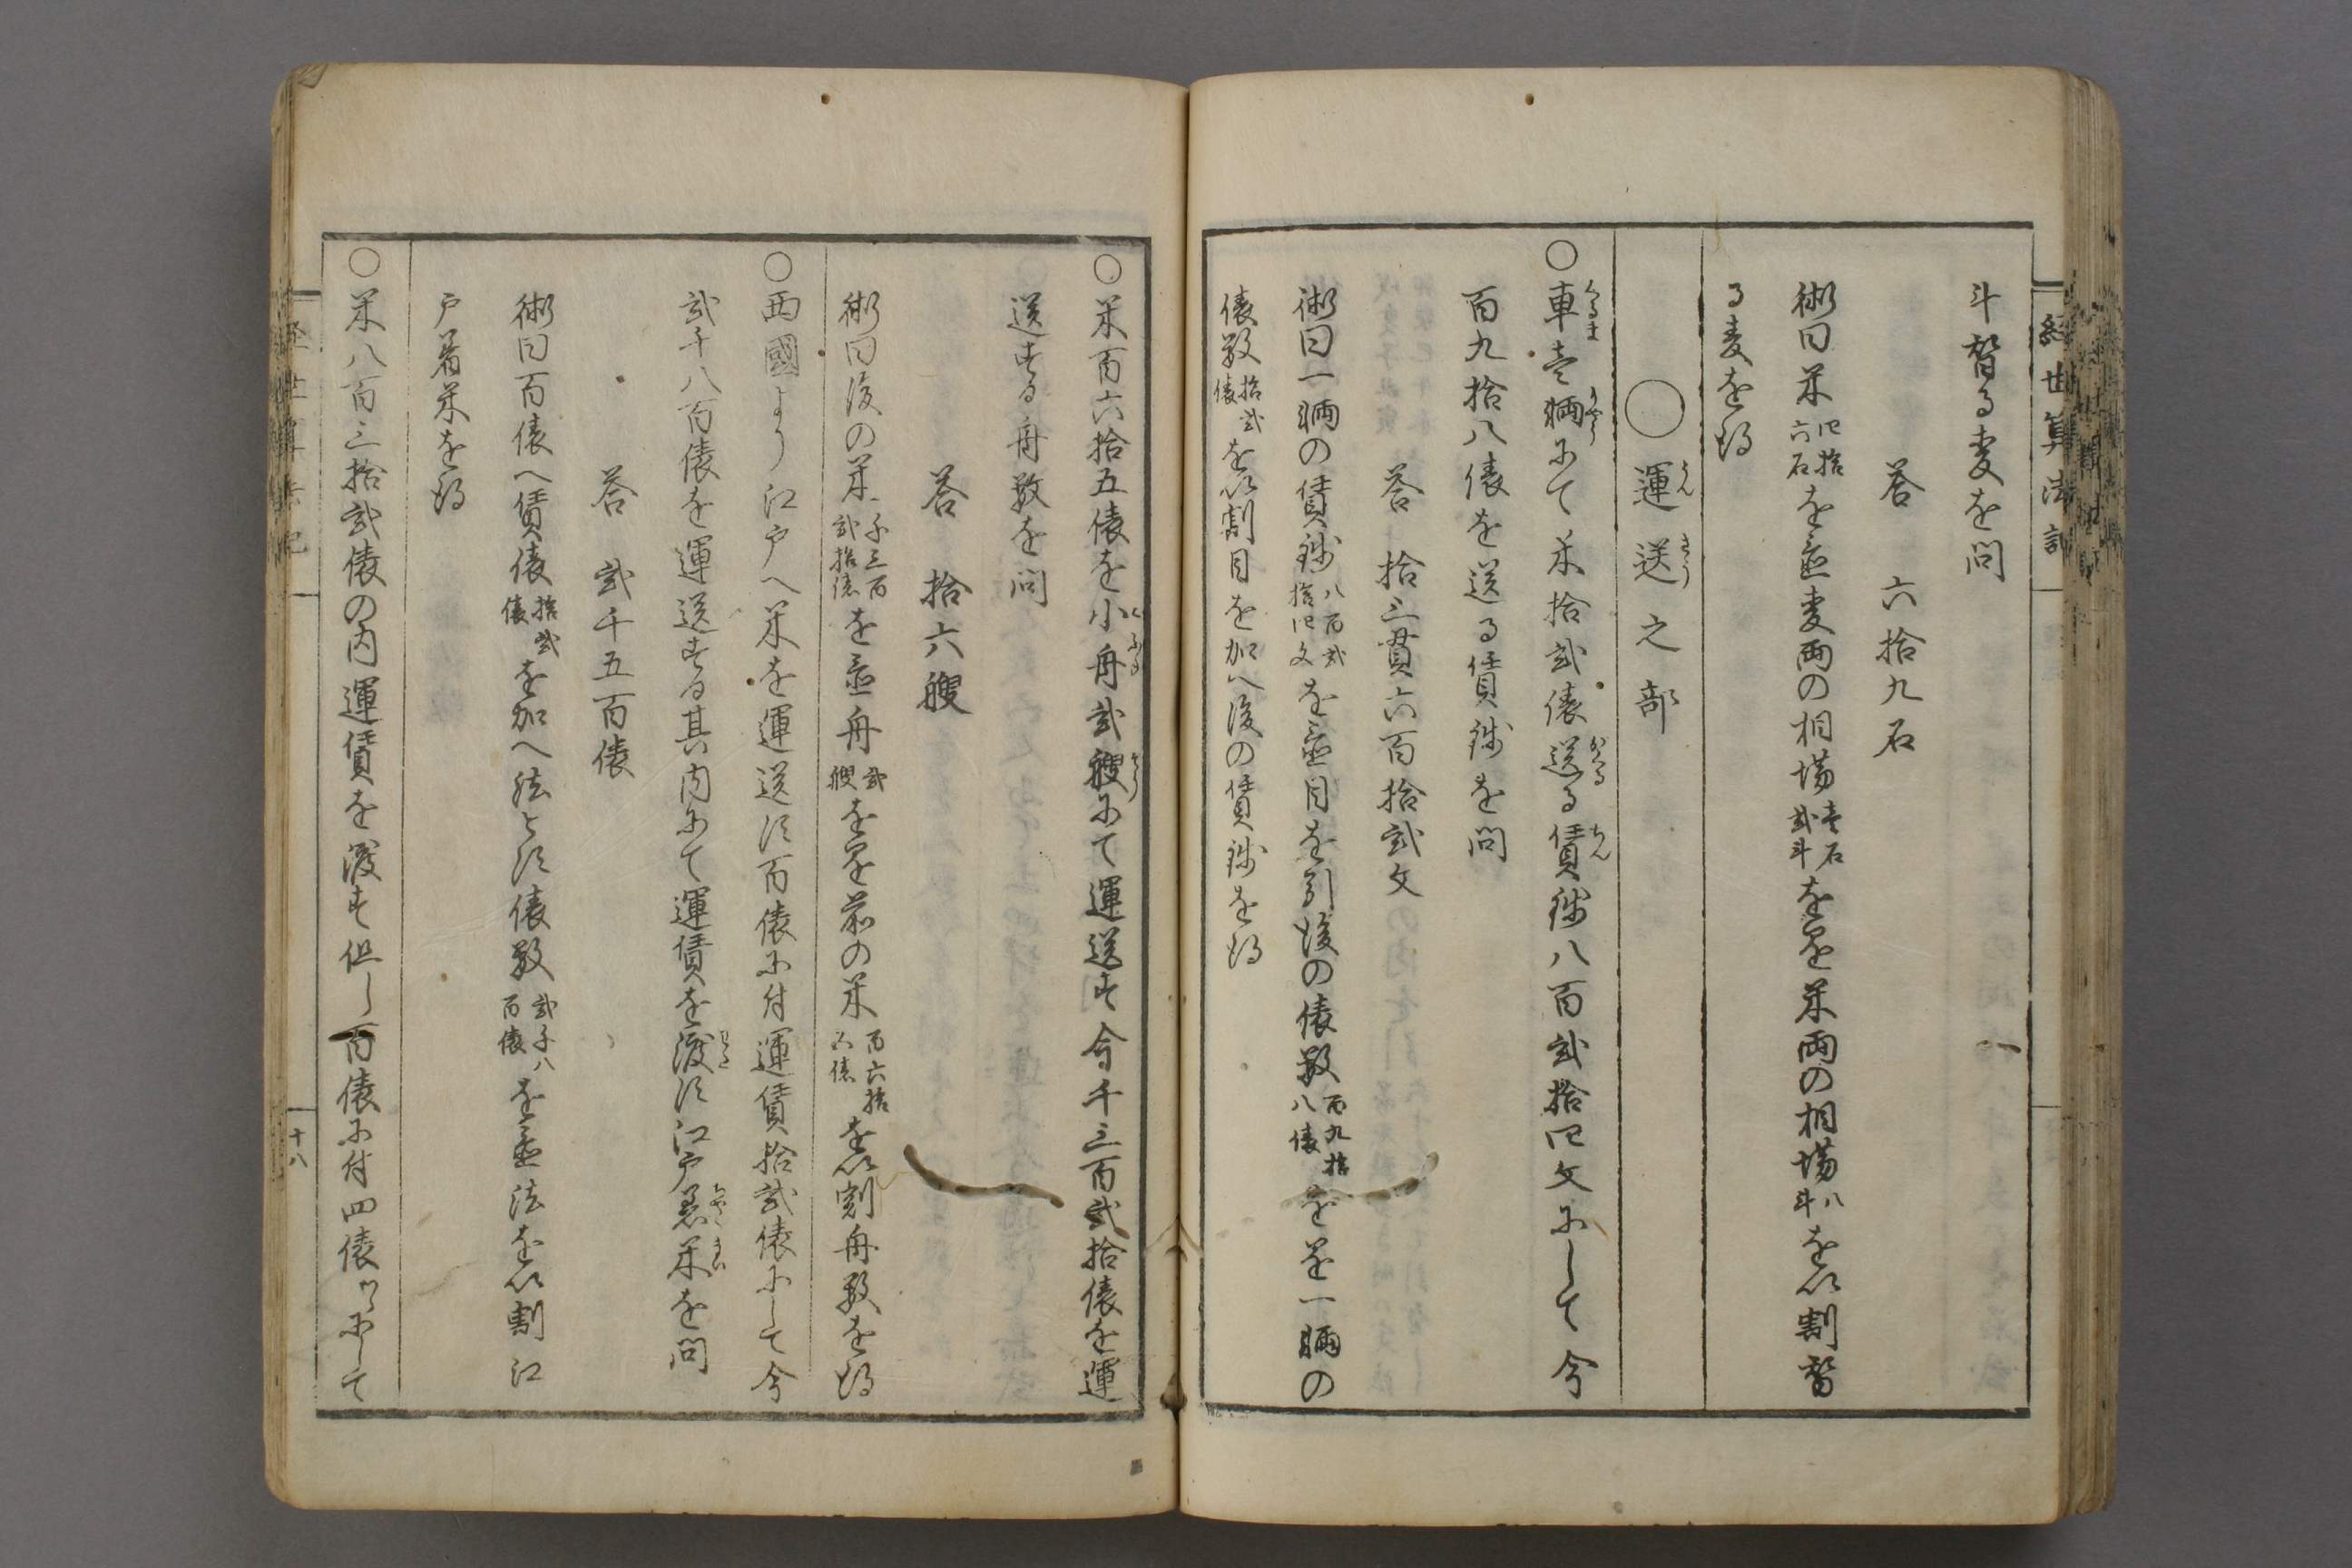 経世算法記
斗替る麦を問
答 六拾九石
術曰米四拾六石を置麦両の相場壱石弐斗を累を米両の相場八斗を以割替
る麦を得
○運送之部
○車壱輌にて米拾弐俵送る賃銭八百弐拾四文にして今
百九拾八俵を送る賃銭を問
答 拾三貫六百拾弐文
術曰一輌の賃銭八百弐拾四文を置目を引後の俵数百九拾八俵を累一輌の
俵数拾弐俵を以割目を加へ後の賃銭を得
○米百六拾五俵を小舟弐艘にて運送す今千三百弐拾俵を運
送する舟数を問
答 拾六艘
術曰後の米千三百弐拾俵を置舟弐艘を累を前の米百六拾五俵を以割舟数を得
○西國より江戸へ米を運送す百俵に付運賃拾弐俵にして今
弐千八百俵を運送する其内にて運賃を渡す江戸着米を問
答 弐千五百俵
術曰百俵へ賃俵拾弐俵を加へ法とす俵数弐千八百俵を置法を以割江
戸着米を得
○米八百三拾弐俵の内運賃を渡す但し百俵に付四俵にして
十八